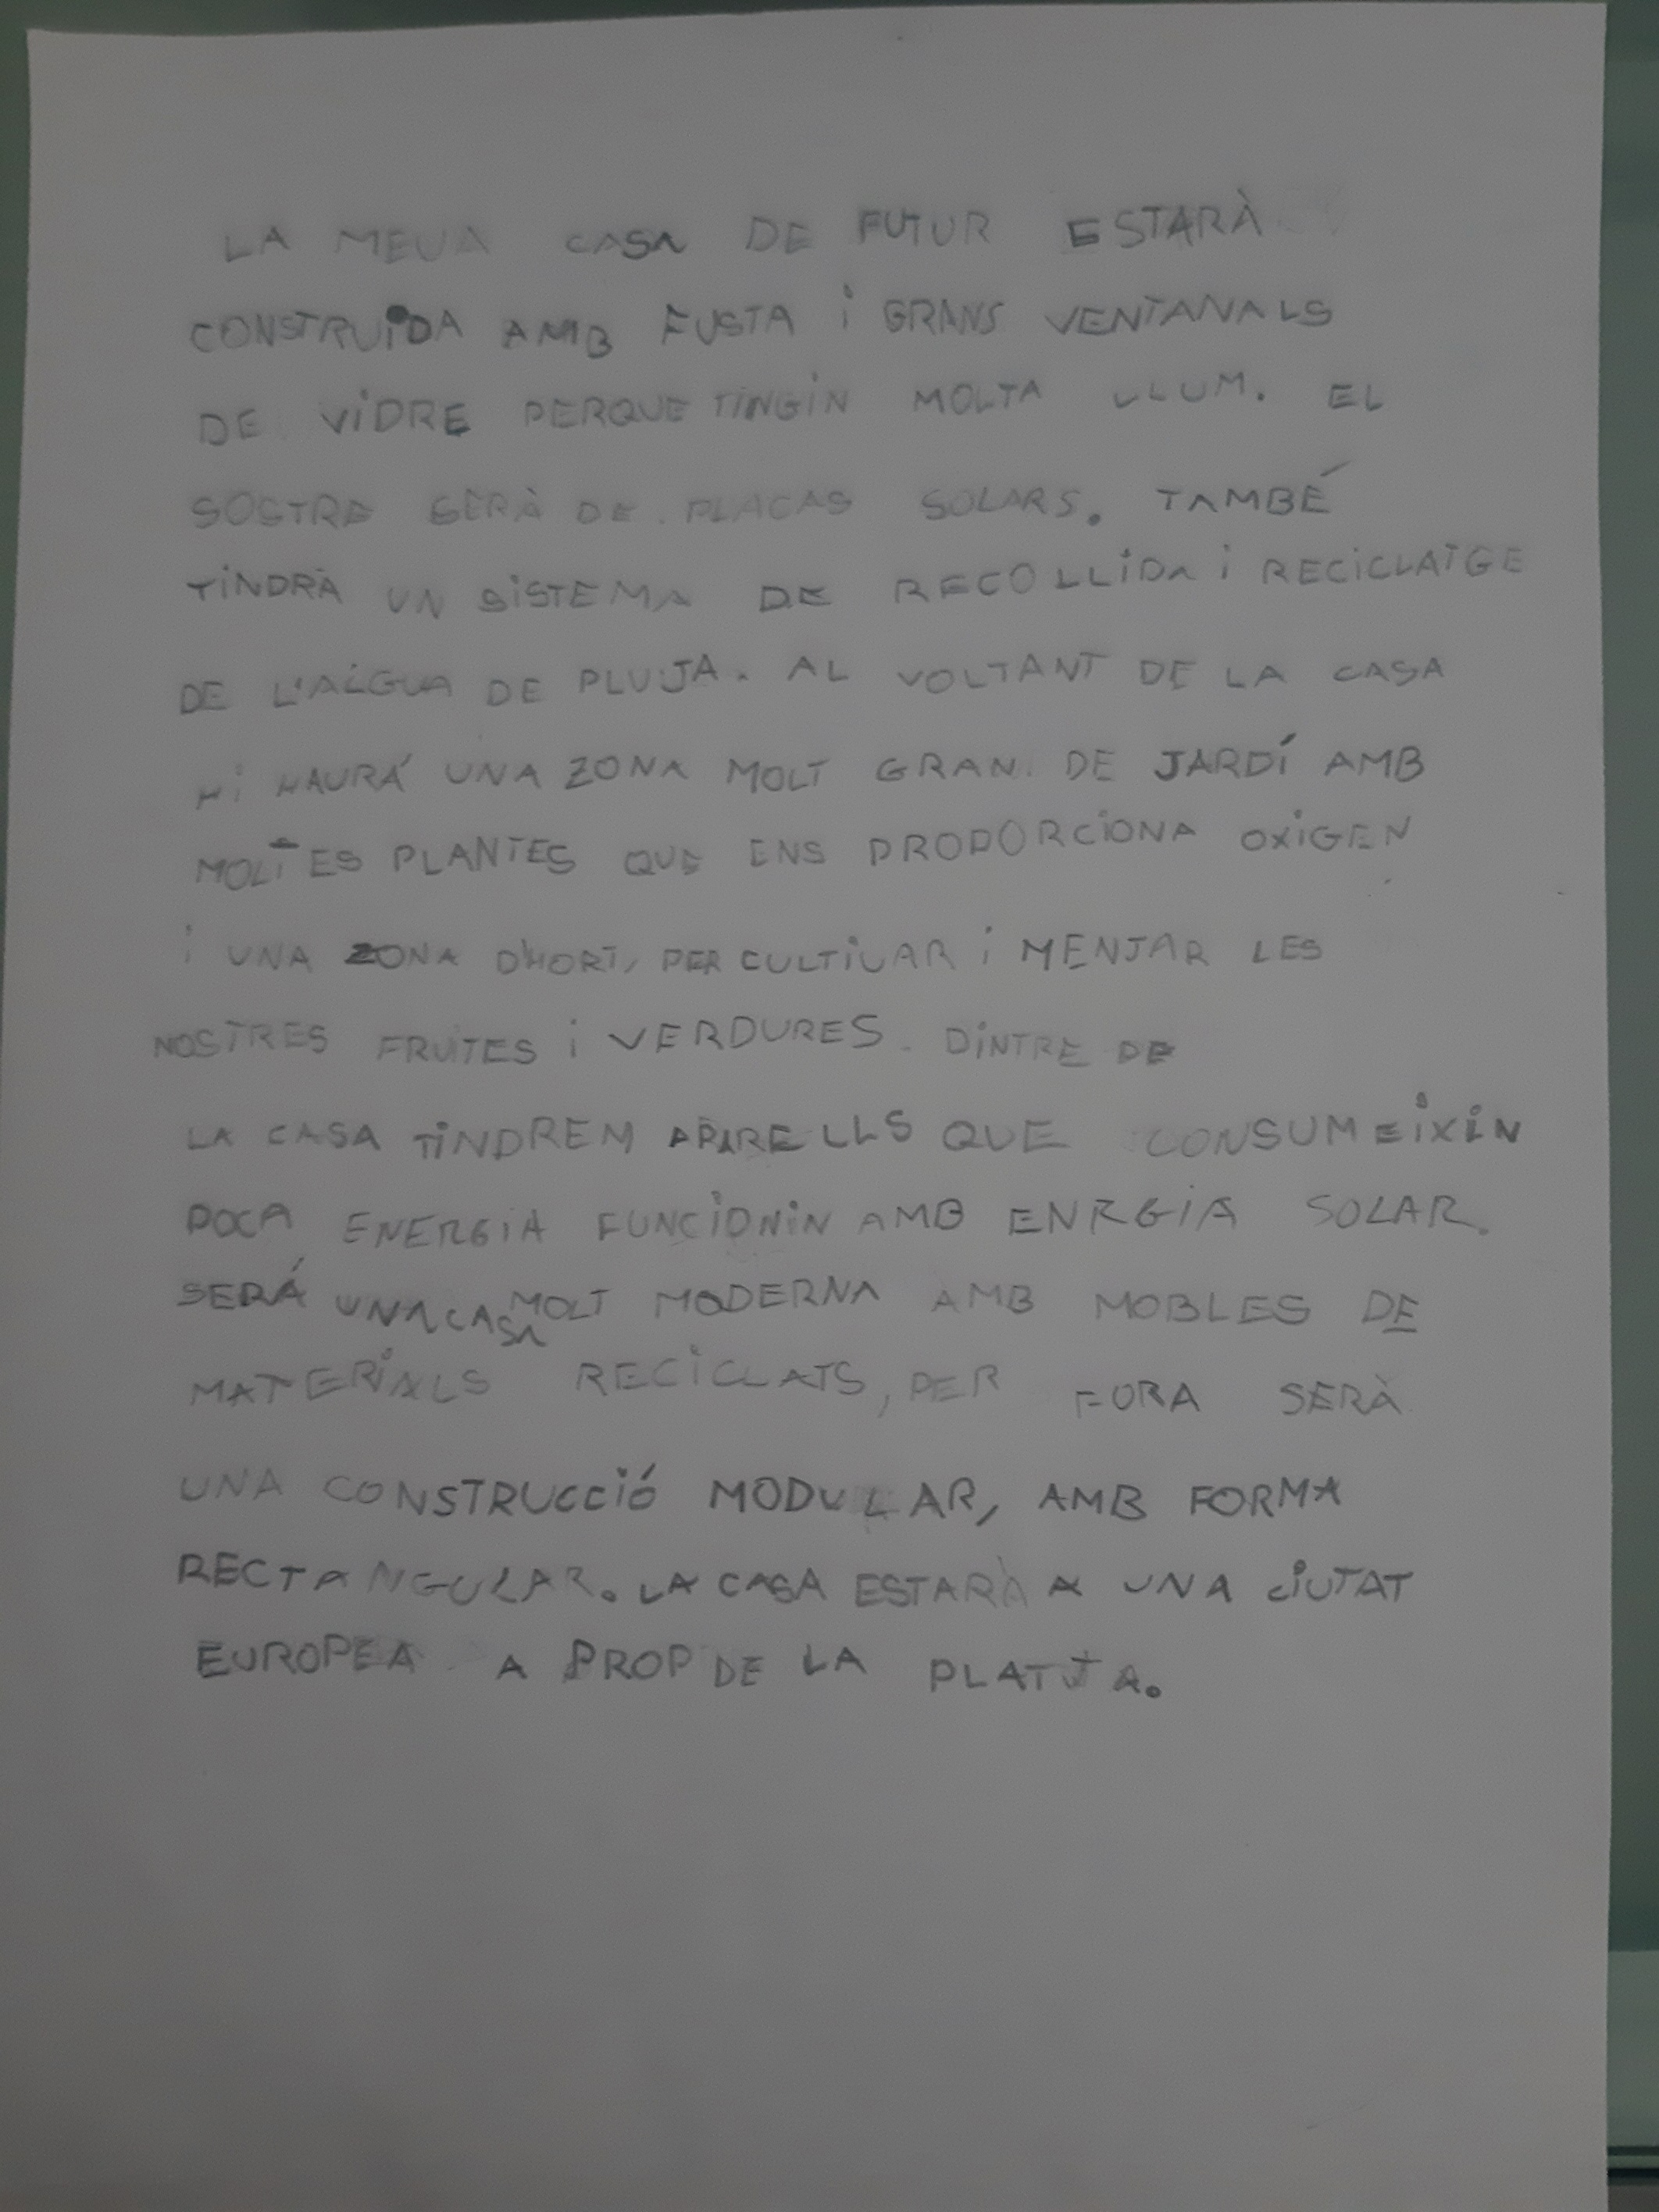 LA MEUA CASA DE FUTUR ESTARÀ
CONSTRUIDA AMB FUSTA i GRANS VENTANALS
DE ViDRE PERQUE TiNGiN MOLTA LLUM. EL
SOSTRE SERÀ DE PLACAS SOLARS. TAMBÉ
TiNDRÀ UN SiSTEMA DE RECOLLiDA i RECiCLATGE
DE L'AiGUA DE PLUJA. AL VOLTANT DE LA CASA
Hi HAURÁ UNA ZONA MOLT GRAN DE JARDÍ AMB
MOLTES PLANTES QUE ENS PROPORCiONA OXiGEN
i UNA ZONA D'HORT, PER CULTiVAR i MENJAR LES
NOSTRES FRUiTES i VERDURES. DiNTRE DE
LA CASA TiNDREM APARELLS QUE CONSUMEiXiN
POCA ENERGiA FUNCiONiN AMB ENRGiA SOLAR.
SERÁ UNA CASA MOLT MODERNA AMB MOBLES DE
MATERiALS RECiCLATS, PER FORA SERÀ
UNA CONSTRUCCiÓ MODULAR, AMB FORMA
RECTANGULAR. LA CASA ESTARÀ A UNA CiUTAT
EUROPEA A PROP DE LA PLATJA.